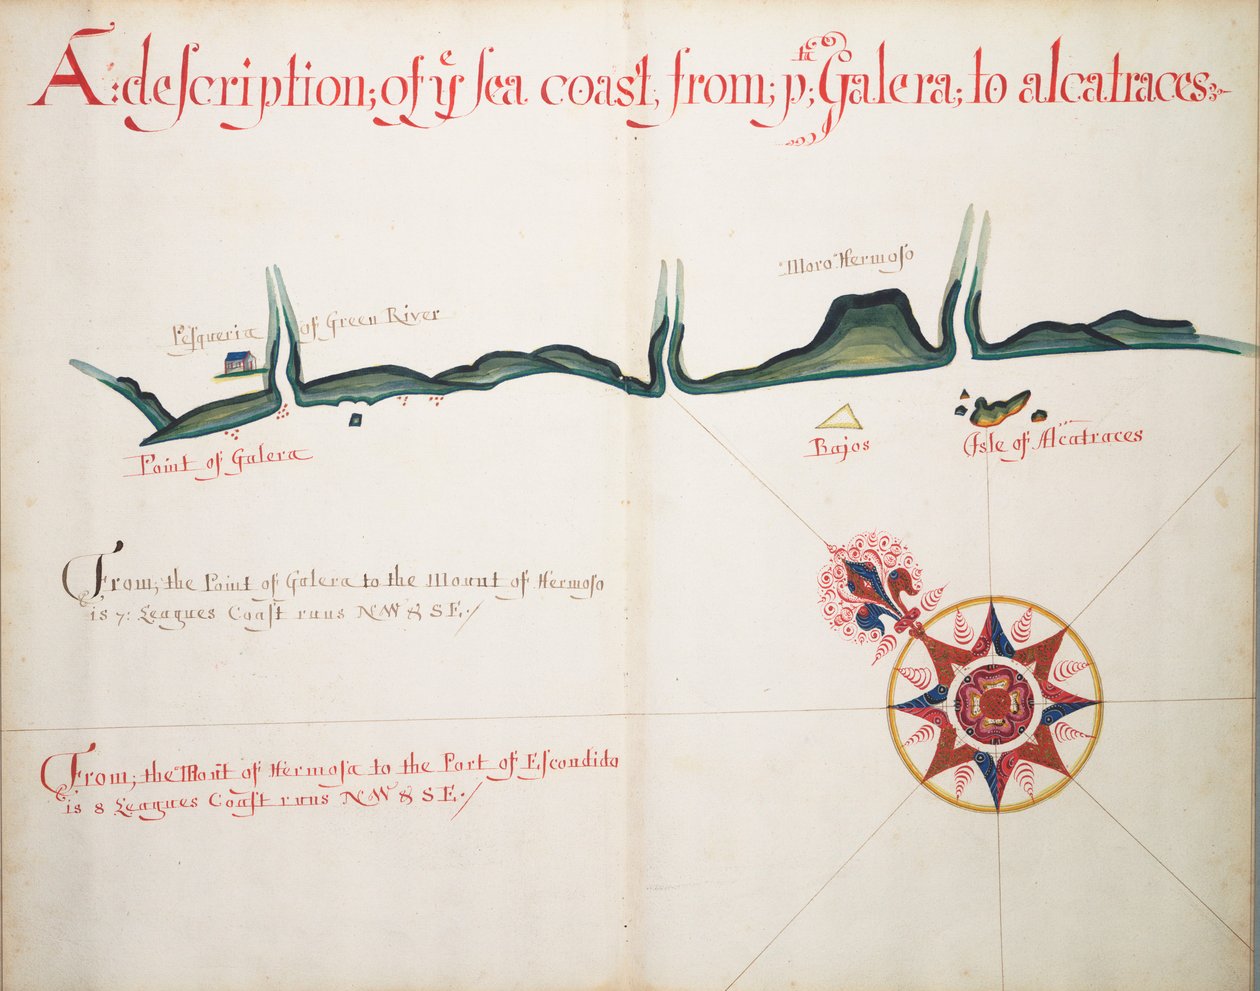 A: description; of yᵉ sea coast, from; pᵗᵉ; Galera; to alcatraces
Moro Hermoso
Pesqueria of Green River
Bajos
Isle of Alcatraces
Point of Galera
From; the Point of Galera to the Mount of Hermoso
is 7: Leagues Coast runs NW & SE:/
From; the Moũt of Hermosa to the Port of Escondido
is 8 Leagues Coast runs NW & SE:/